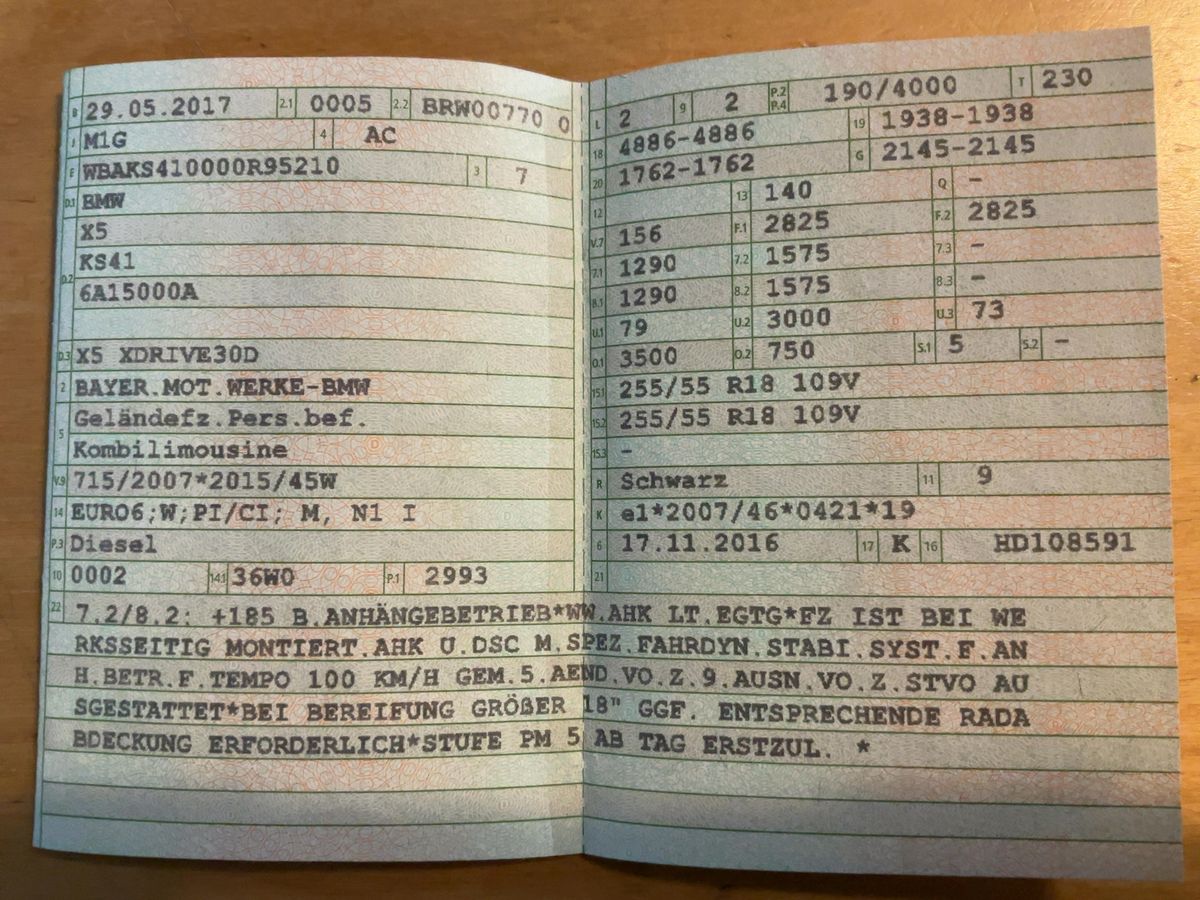 B 29.05.2017 2.1 0005 2.2 BRW00770 0
J M1G 4 AC
E WBAKS410000R95210 3 7
D.1 BMW
D.2 X5
KS41
6A15000A
D.3 X5 XDRIVE30D
2 BAYER.MOT.WERKE-BMW
5 Geländefz.Pers.bef.
Kombilimousine
V.9 715/2007*2015/45W
14 EURO6;W;PI/CI; M, N1 I
P.3 Diesel
10 0002 14.1 36W0 P.1 2993
L 2 9 2 P.2 P.4 190/4000 T 230
18 4886-4886 19 1938-1938
20 1762-1762 G 2145-2145
12 13 140 Q -
V.7 156 F.1 2825 F.2 2825
7.1 1290 7.2 1575 7.3 -
8.1 1290 8.2 1575 8.3 -
U.1 79 U.2 3000 U.3 73
O.1 3500 O.2 750 S.1 5 S.2 -
15.1 255/55 R18 109V
15.2 255/55 R18 109V
15.3 -
R Schwarz 11 9
K e1*2007/46*0421*19
6 17.11.2016 17 K 16 HD108591
21
22 7.2/8.2: +185 B.ANHÄNGEBETRIEB*WW.AHK LT.EGTG*FZ IST BEI WE
RKSSEITIG MONTIERT.AHK U.DSC M.SPEZ.FAHRDYN.STABI.SYST.F.AN
H.BETR.F.TEMPO 100 KM/H GEM.5.AEND.VO.Z.9.AUSN.VO.Z.STVO AU
SGESTATTET*BEI BEREIFUNG GRÖßER 18" GGF. ENTSPRECHENDE RADA
BDECKUNG ERFORDERLICH*STUFE PM 5 AB TAG ERSTZUL. *